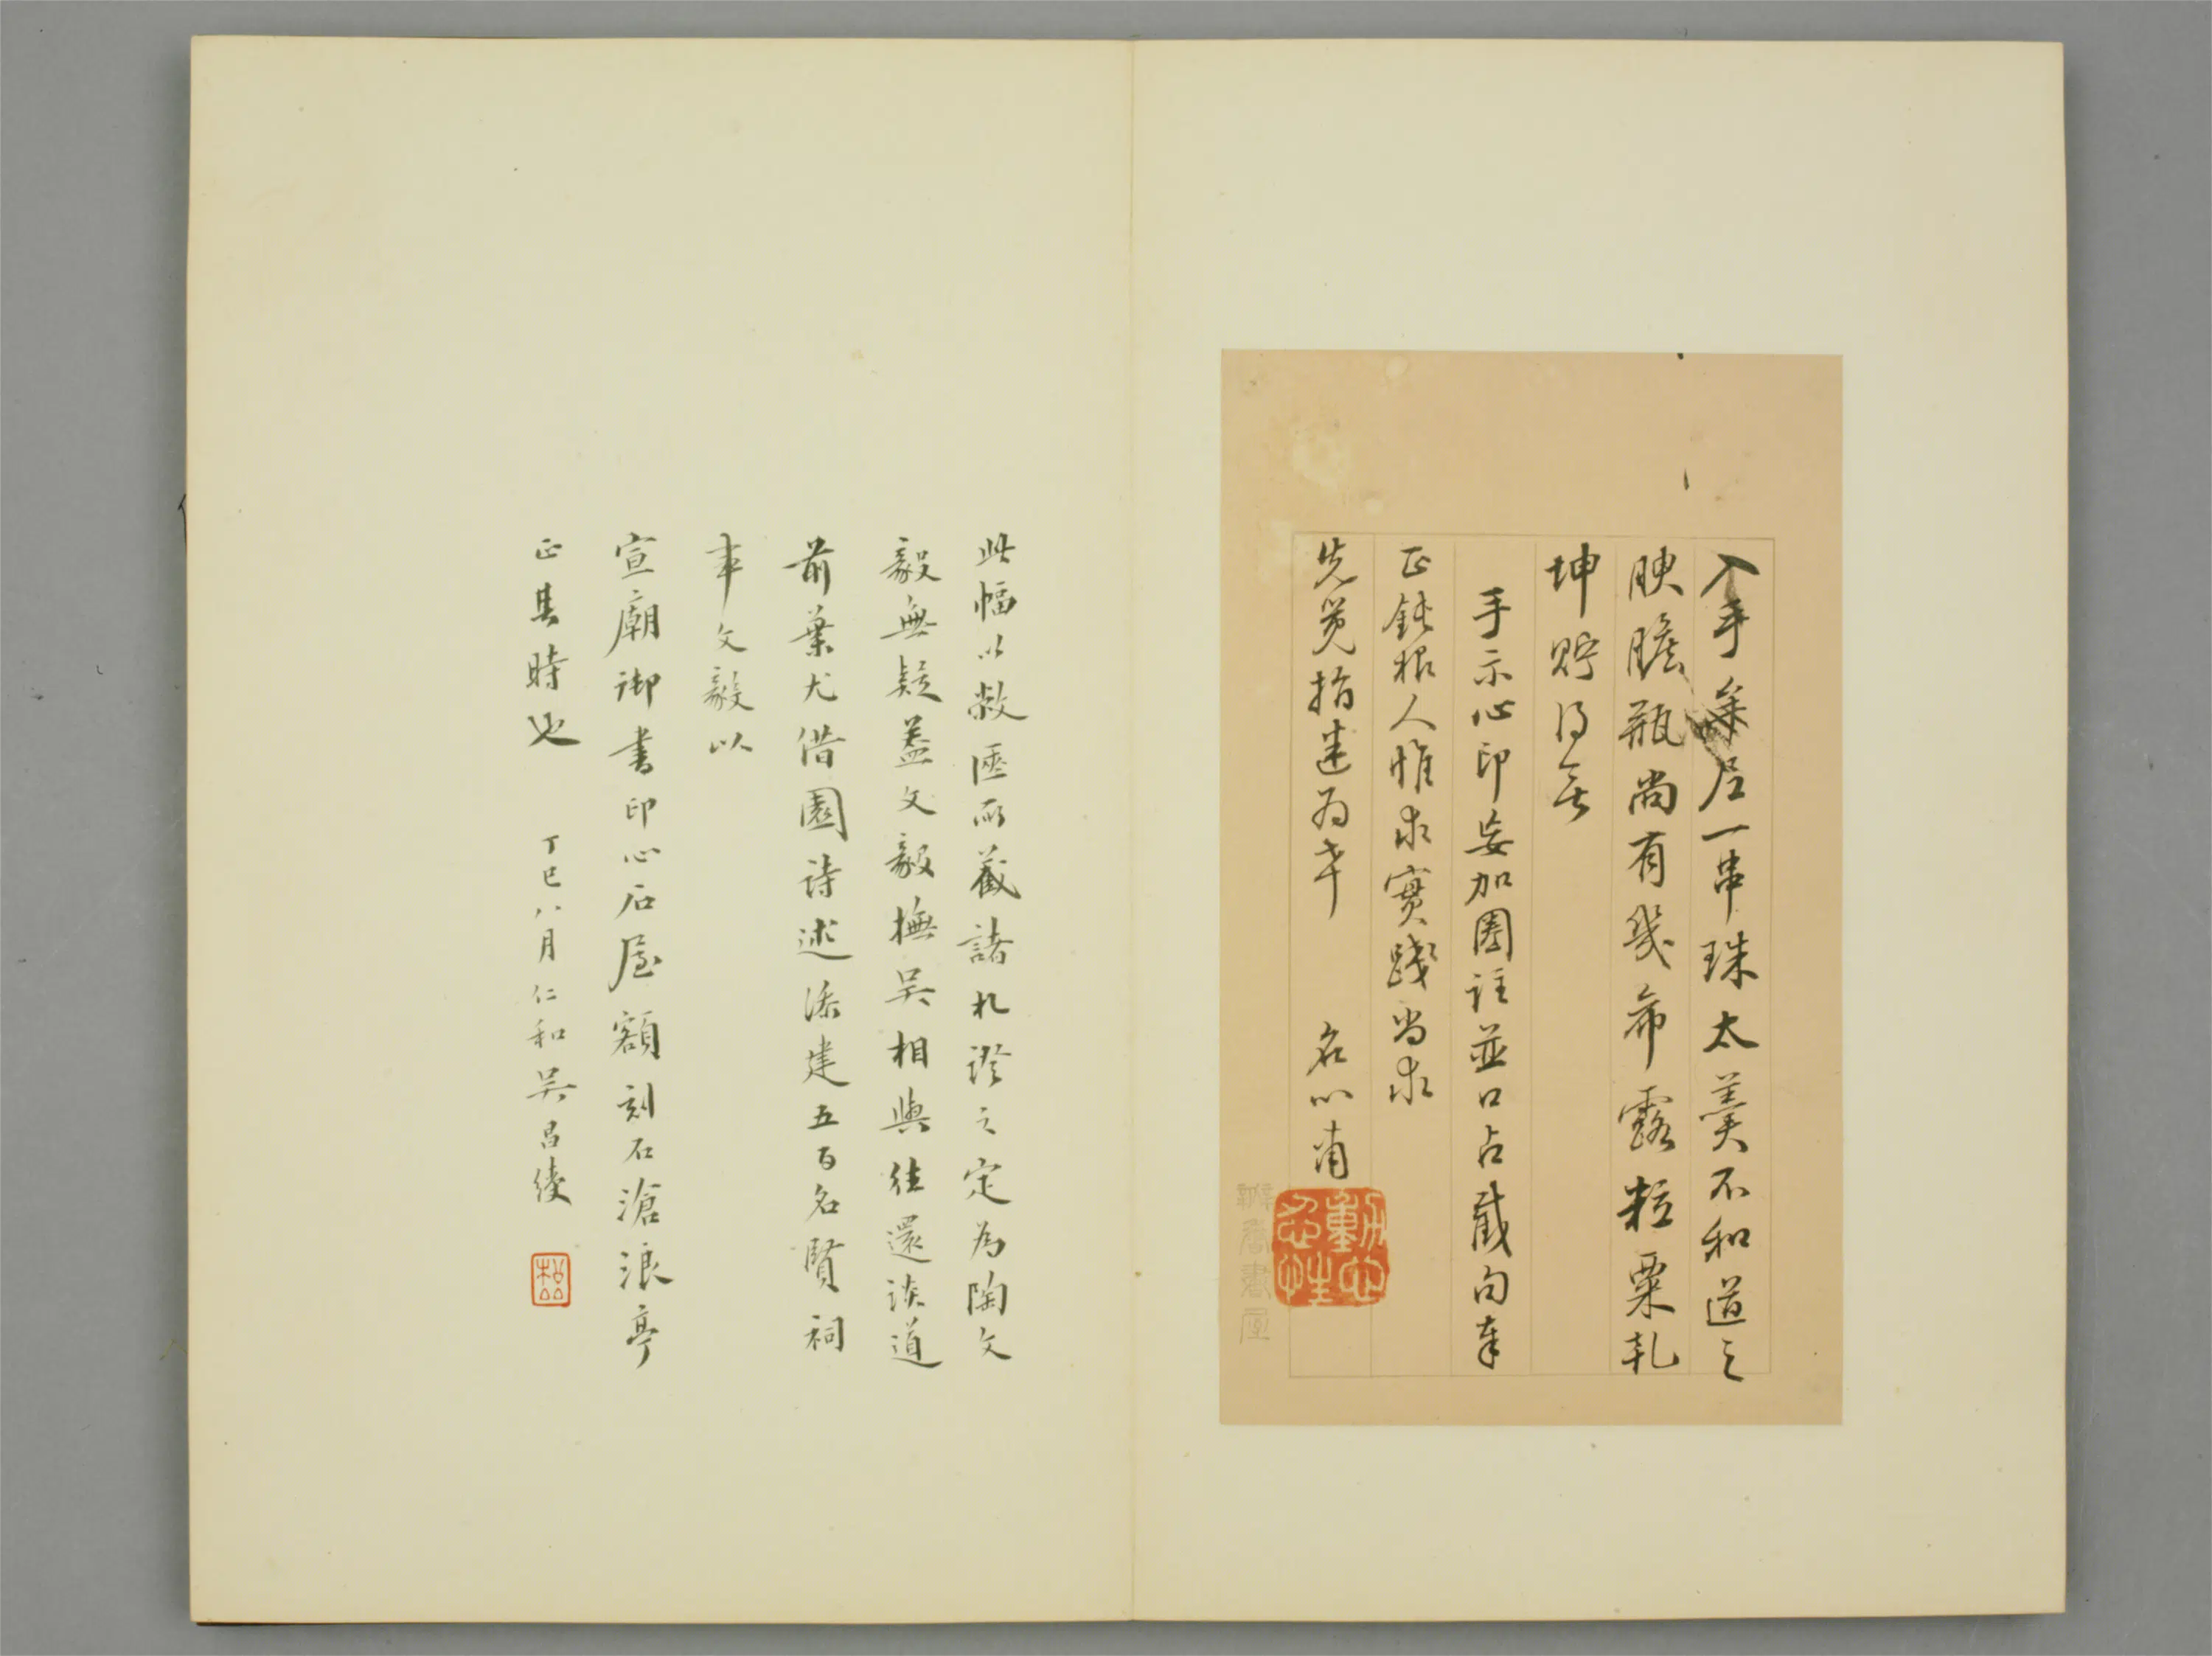 入手牟尼一串珠太羹不和道之
腴膽瓶尚有幾希露粒粟乾
坤貯得無
手示心印妄加圈註並口占截句奉
正鈍根人惟求實踐尚求
先覺指迷為幸 名心甫
動心忍性
辦香書屋
此幅以敝匧所藏諸札證之定為陶文
毅無疑蓋文毅撫吳相與往還談道
前葉尤借園詩述添建五百名賢祠
事文毅以
宣廟御書印心石屋額刻石滄浪亭
正其時也 丁巳八月仁和吳昌綬